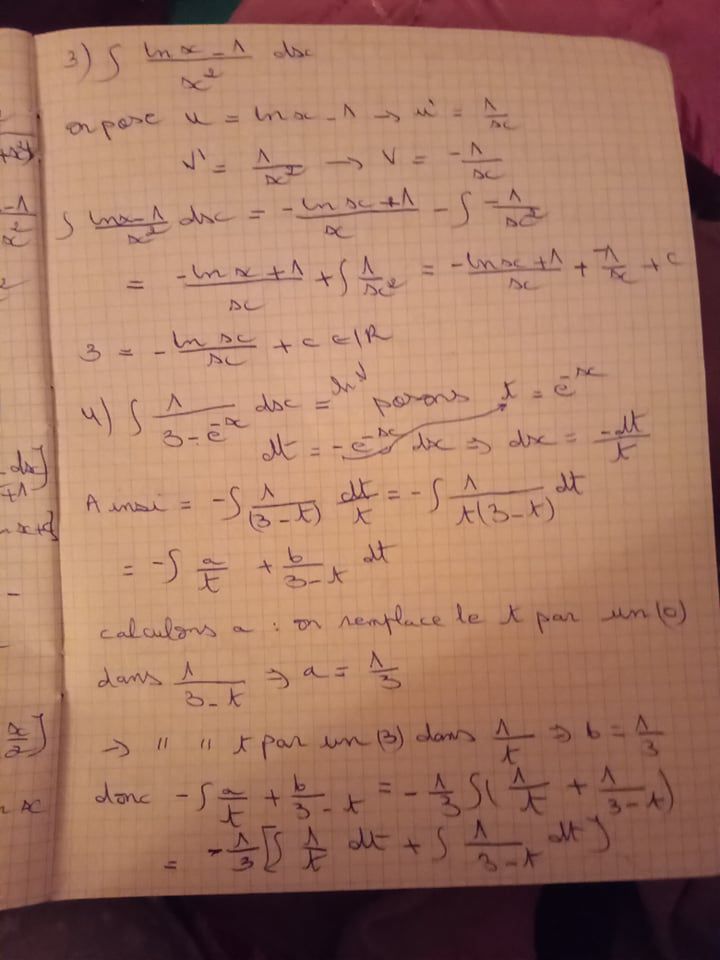 +x²)
-1
x²
dx]
+1
x/2]
3) ∫ (ln x - 1)/x² dx
on pose u = ln x - 1 → u' = 1/x
v' = 1/x² → v = -1/x
∫ (ln x - 1)/x² dx = (-ln x + 1)/x - ∫ -1/x²
= (-ln x + 1)/x + ∫ 1/x² = (-ln x + 1)/x + -1/x + c
3 = -ln x/x + c ∈ ℝ
4) ∫ 1/(3 - e^-x) dx = posons t = e^-x
dt = -e^-x dx ⇒ dx = -dt/t
Ainsi = -∫ 1/(3-t) dt/t = -∫ 1/(t(3-t)) dt
= -∫ a/t + b/(3-t) dt
calculons a : on remplace le t par un (0)
dans 1/(3-t) ⇒ a = 1/3
→ " " t par un (3) dans 1/t ⇒ b = 1/3
donc -∫ a/t + b/(3-t) = -1/3 ∫( 1/t + 1/(3-t) )
= -1/3 [∫ 1/t dt + ∫ 1/(3-t) dt]